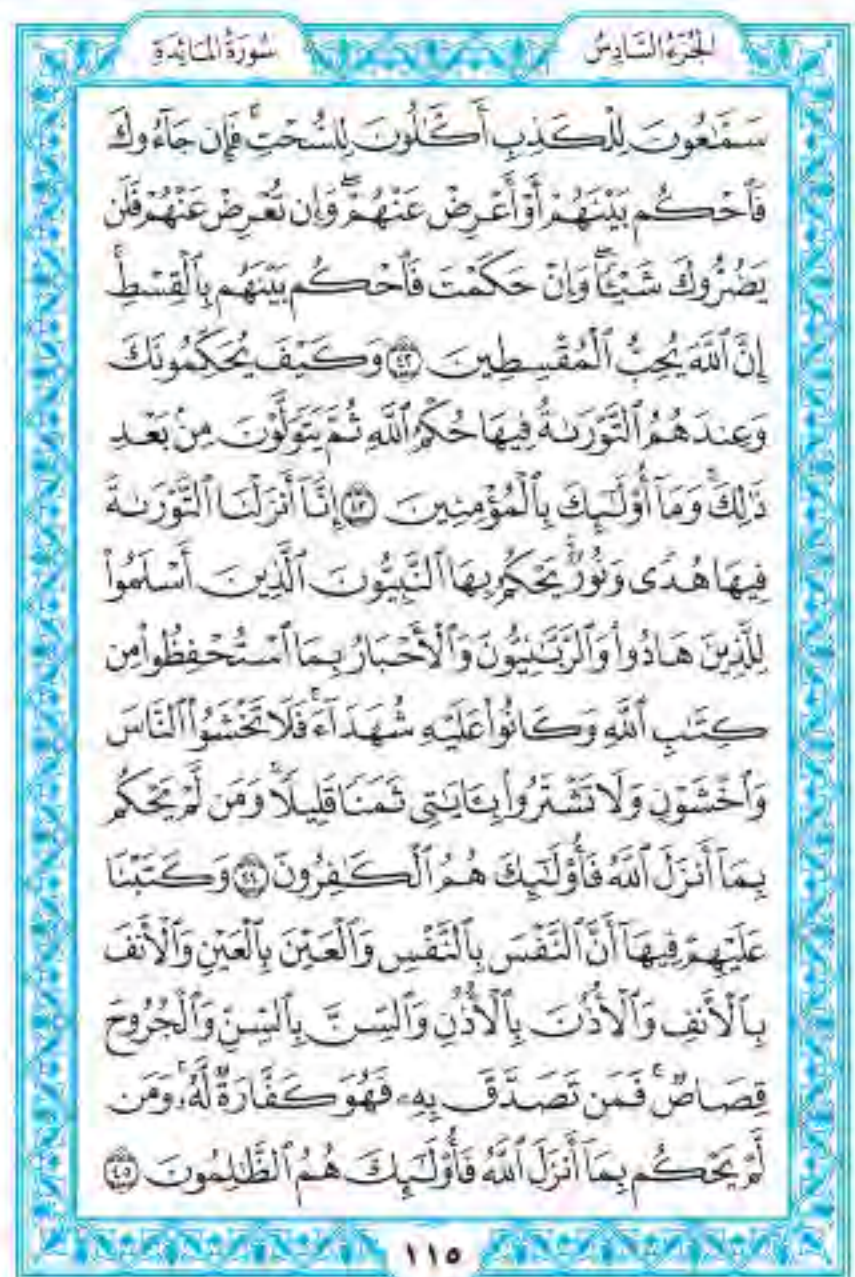 الجُزْءُ السَّادِسُ سُورَةُ المَائِدَةِ
سَمَّٰعُونَ لِلْكَذِبِ أَكَّٰلُونَ لِلسُّحْتِۚ فَإِن جَآءُوكَ
فَٱحْكُم بَيْنَهُمْ أَوْ أَعْرِضْ عَنْهُمْۖ وَإِن تُعْرِضْ عَنْهُمْ فَلَن
يَضُرُّوكَ شَيْـًٔاۖ وَإِنْ حَكَمْتَ فَٱحْكُم بَيْنَهُم بِٱلْقِسْطِۚ
إِنَّ ٱللَّهَ يُحِبُّ ٱلْمُقْسِطِينَ ٤٢ وَكَيْفَ يُحَكِّمُونَكَ
وَعِندَهُمُ ٱلتَّوْرَىٰةُ فِيهَا حُكْمُ ٱللَّهِ ثُمَّ يَتَوَلَّوْنَ مِنۢ بَعْدِ
ذَٰلِكَۚ وَمَآ أُو۟لَٰٓئِكَ بِٱلْمُؤْمِنِينَ ٤٣ إِنَّآ أَنزَلْنَا ٱلتَّوْرَىٰةَ
فِيهَا هُدًى وَنُورٌۚ يَحْكُمُ بِهَا ٱلنَّبِيُّونَ ٱلَّذِينَ أَسْلَمُوا۟
لِلَّذِينَ هَادُوا۟ وَٱلرَّبَّٰنِيُّونَ وَٱلْأَحْبَارُ بِمَا ٱسْتُحْفِظُوا۟ مِن
كِتَٰبِ ٱللَّهِ وَكَانُوا۟ عَلَيْهِ شُهَدَآءَۚ فَلَا تَخْشَوُا۟ ٱلنَّاسَ
وَٱخْشَوْنِ وَلَا تَشْتَرُوا۟ بِـَٔايَٰتِى ثَمَنًا قَلِيلًاۚ وَمَن لَّمْ يَحْكُم
بِمَآ أَنزَلَ ٱللَّهُ فَأُو۟لَٰٓئِكَ هُمُ ٱلْكَٰفِرُونَ ٤٤ وَكَتَبْنَا
عَلَيْهِمْ فِيهَآ أَنَّ ٱلنَّفْسَ بِٱلنَّفْسِ وَٱلْعَيْنَ بِٱلْعَيْنِ وَٱلْأَنفَ
بِٱلْأَنفِ وَٱلْأُذُنَ بِٱلْأُذُنِ وَٱلسِّنَّ بِٱلسِّنِّ وَٱلْجُرُوحَ
قِصَاصٌۚ فَمَن تَصَدَّقَ بِهِۦ فَهُوَ كَفَّارَةٌ لَّهُۥۚ وَمَن
لَّمْ يَحْكُم بِمَآ أَنزَلَ ٱللَّهُ فَأُو۟لَٰٓئِكَ هُمُ ٱلظَّٰلِمُونَ ٤٥
١١٥